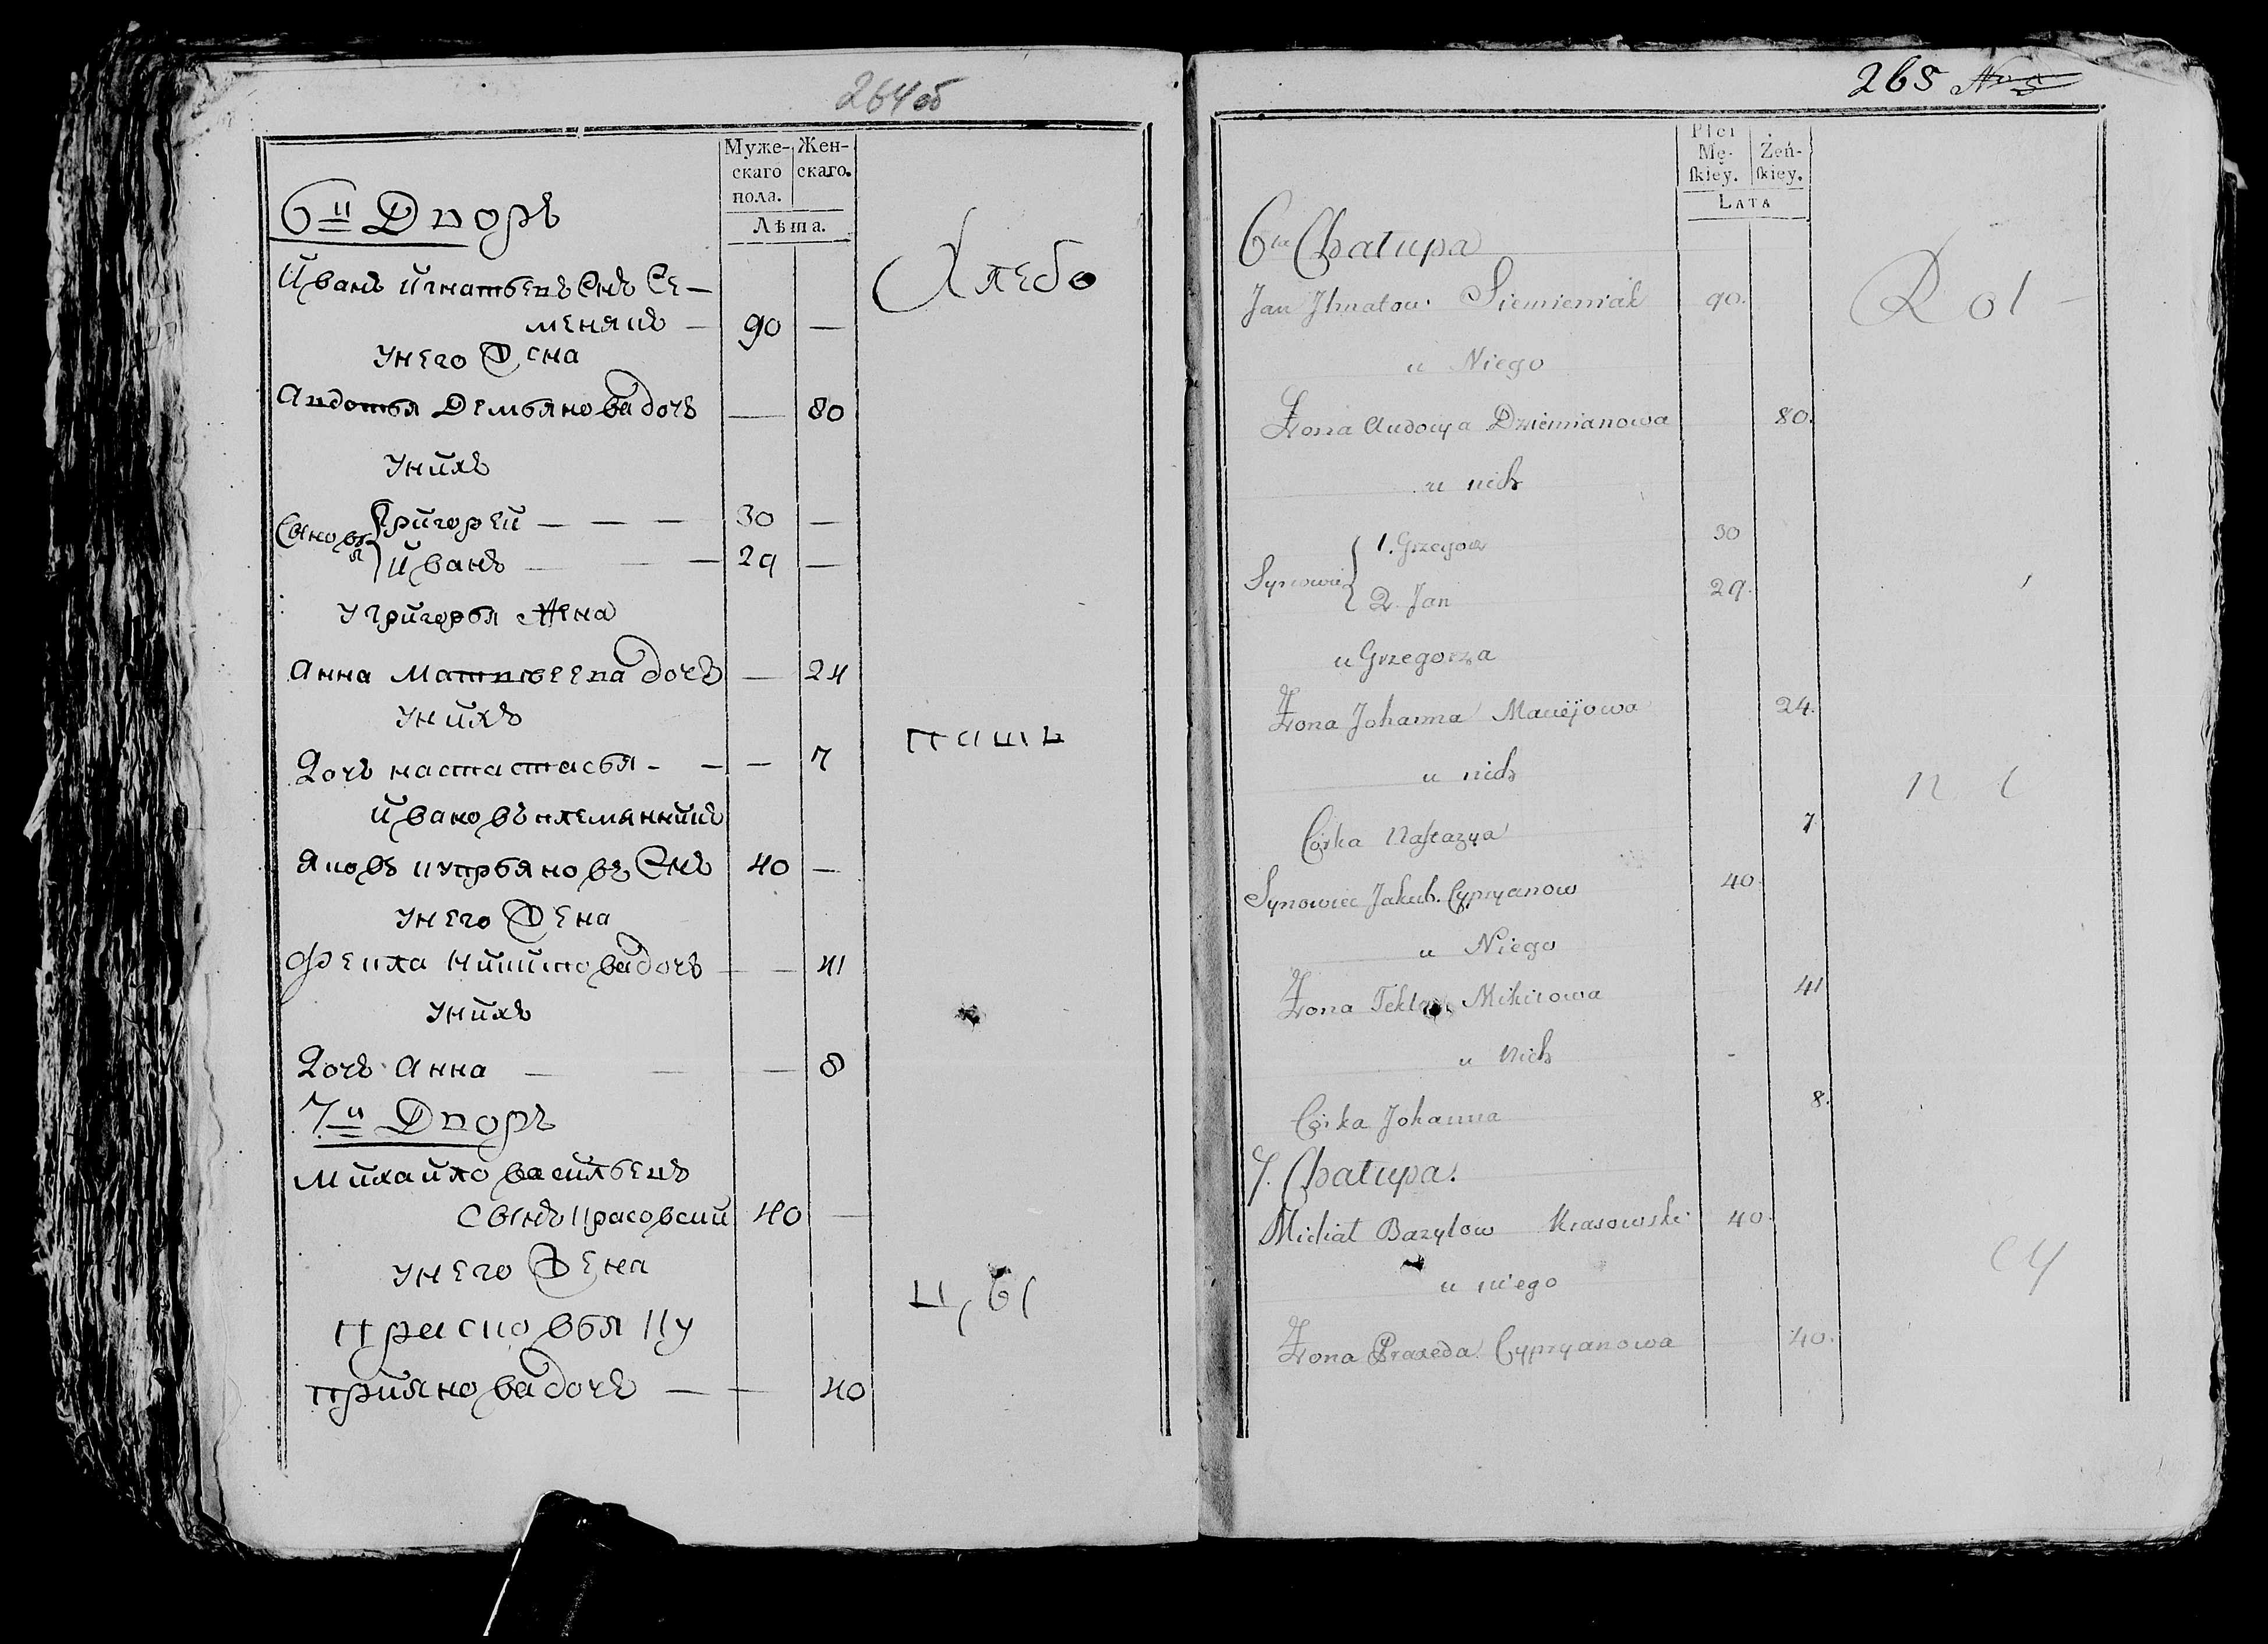 264об
Муже-
скаго
пола.
Жен-
скаго.
Лѣта.
6й Дворъ
Иванъ Игнатьевъ Снъ Се-
меняцъ — 90 —
у него Жена
Авдотья Демьянова дочь — 80
у нихъ
Сыновья
Григорей — — — 30 —
Иванъ — — — 29 —
у Григорья Жена
Анна Матвеева дочь — 24
у нихъ
Дочь настастасья - — — 7
Ивановъ племянникъ
Яковъ Купрьяновъ Снъ 40 —
у него Жена
Фекла Никитова дочь — — 41
у нихъ
Дочь Анна — — — 8
7й Дворъ
Михайло васильевъ
сынъ Красовский 40 —
у него Жена
Прасковья Ку
приянова дочь — — 40
Хлебо
паш
цы
265
Płci
Mę-
ſkiey.
Żeń-
ſkiey.
LATA
6ta Chałupa
Jan Ihnatow Siemieniak 90.
u Niego
Żona Audocya Dziemianowa 80.
u nich
Synowie
1. Grzegorz 30
2. Jan 29.
u Grzegorza
Żona Johanna Maciejowa 24.
u nich
Córka Naſtazya 7
Synowiec Jakub Cypryanow 40
u Niego
Żona Tekla Mikitowa 41
u Nich
Córka Johanna 8.
7. Chałupa.
Michał Bazylow Krasowski 40.
u niego
Żona Praxeda Cypryanowa 40.
Rol
ni
cy